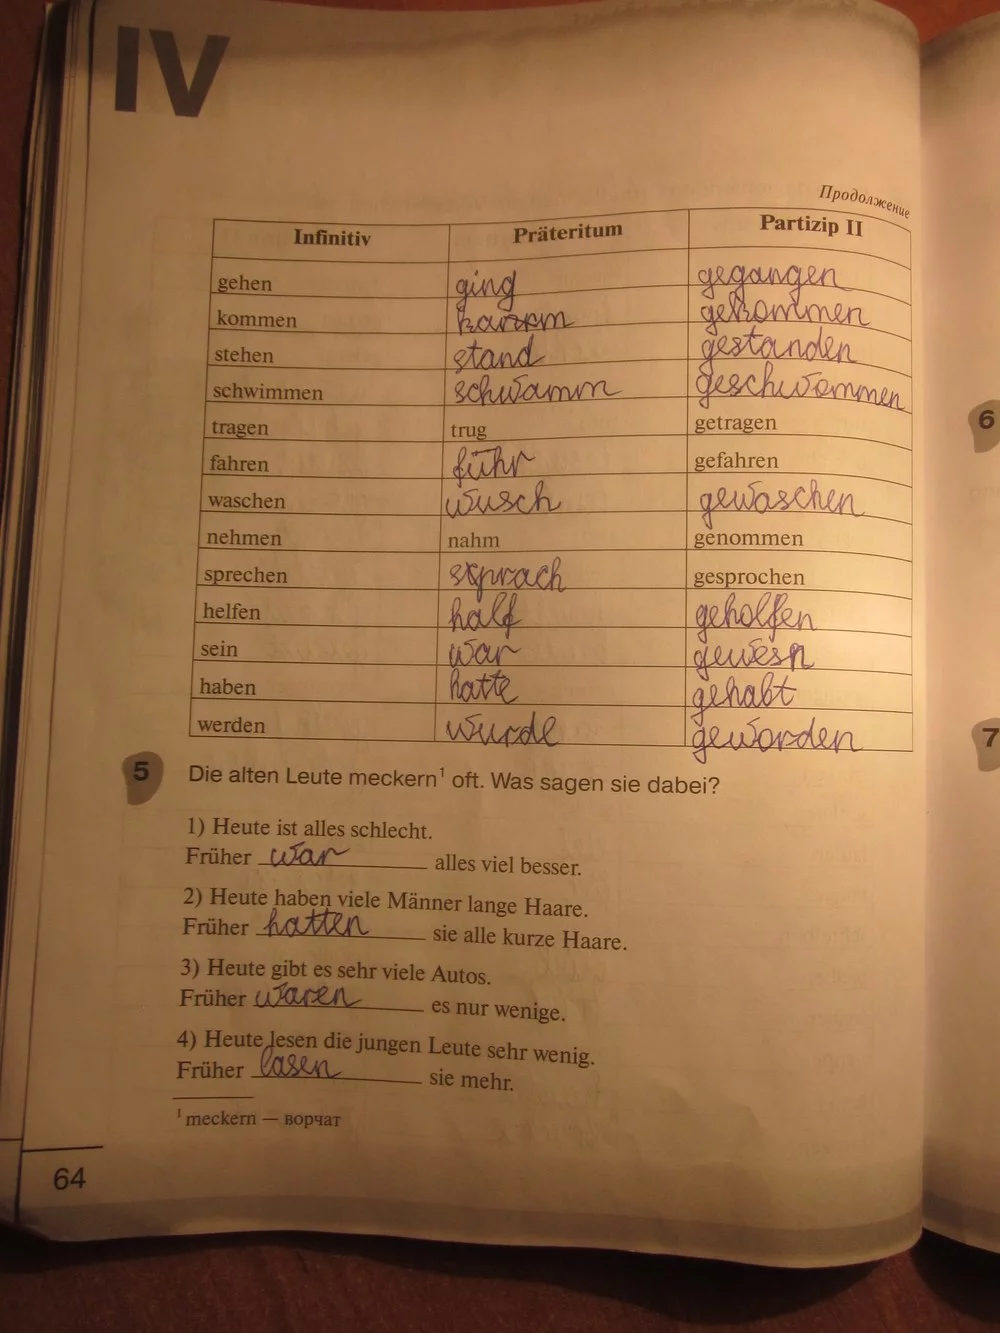 IV
Продолжение
Infinitiv Präteritum Partizip II
gehen ging gegangen
kommen gekommen
stehen stand gestanden
schwimmen schwamm geschwommen
tragen trug getragen
fahren fuhr gefahren
waschen wusch gewaschen
nehmen nahm genommen
sprechen sprach gesprochen
helfen half geholfen
sein war gewesn
haben hatte gehabt
werden wurde geworden
5 Die alten Leute meckern¹ oft. Was sagen sie dabei?
1) Heute ist alles schlecht.
Früher war alles viel besser.
2) Heute haben viele Männer lange Haare.
Früher hatten sie alle kurze Haare.
3) Heute gibt es sehr viele Autos.
Früher waren es nur wenige.
4) Heute lesen die jungen Leute sehr wenig.
Früher lasen sie mehr.
¹ meckern — ворчат
64
6
7